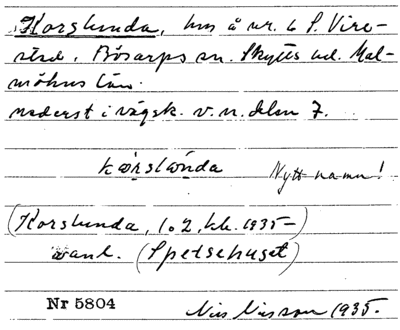 Korslunda, hus å nr. 6 S. Vire-
stad. Bösarps sn. Skytts hd. Mal-
möhus län.
nederst i vägsk. v. n. delen 7.
Nytt namn!
(Korslunda, 1 o 2, kk. 1935-)
vanl. (Spetsehuset)
Nr 5804
Nils Nilsson 1935.